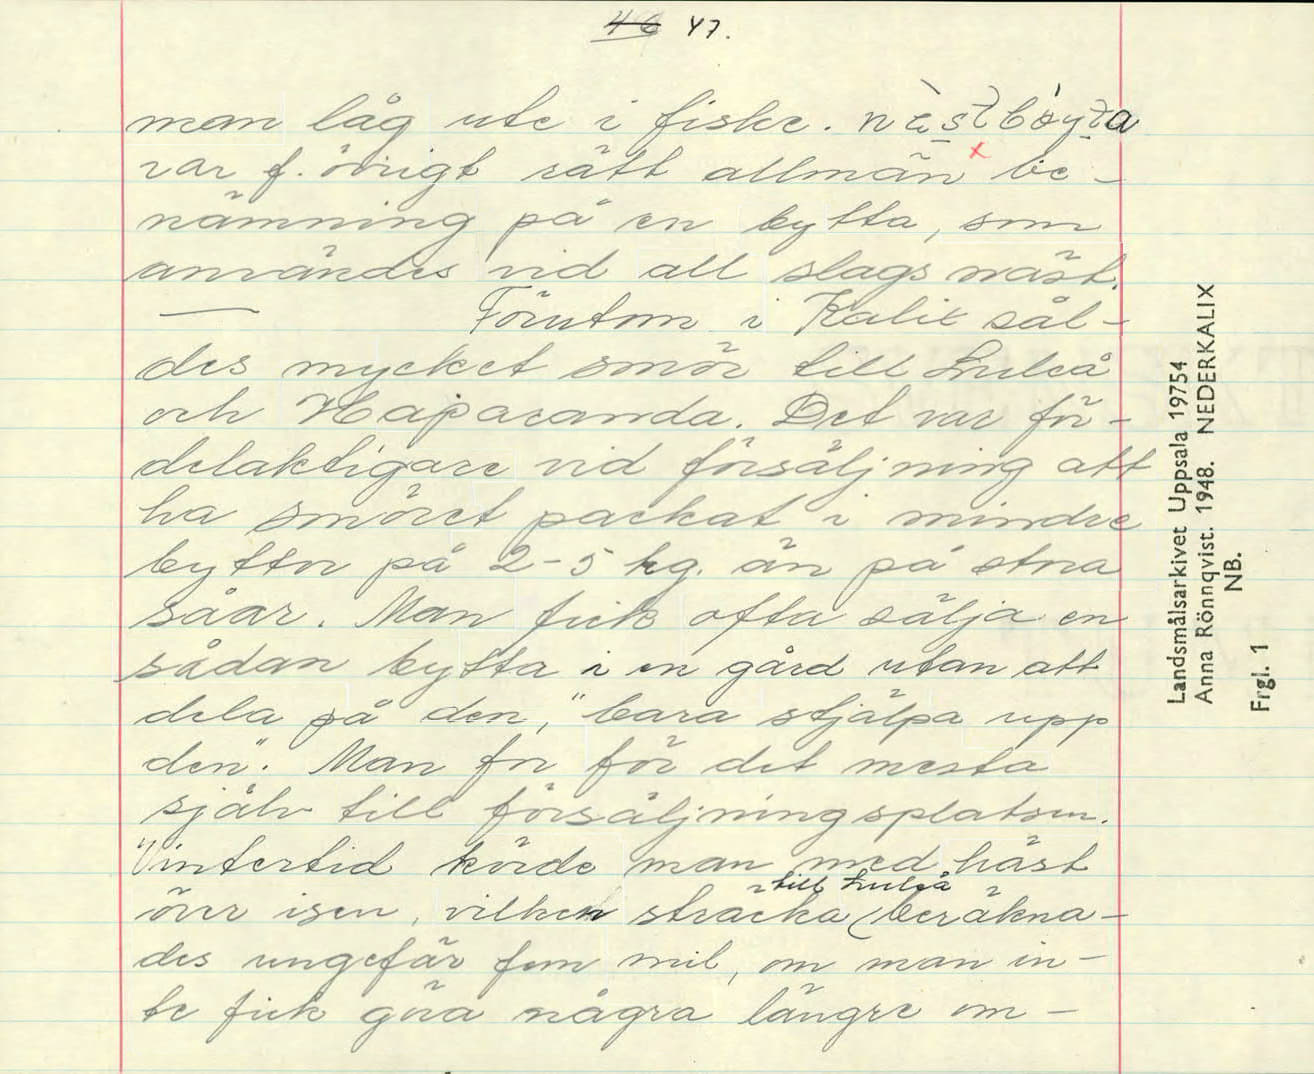 46 47.
man låg ute i fiske. nèstbòyta
var f. övrigt rätt allmän be-
nämning på en bytta, som
användes vid all slags näst.
— Förutom i Kalix sål-
des mycket smör till Luleå
och Haparanda. Det var för-
delaktigare vid försäljning att
ha smöret packat i mindre
byttor på 2-5 kg. än på stora
såar. Man fick ofta sälja en
sådan bytta i en gård utan att
dela på den, "bara stjälpa upp
den". Man for för det mesta
själv till försäljningsplatsen.
Vintertid körde man med häst
över isen, vilken sträcka till Luleå beräkna-
des ungefär fem mil, om man in-
te fick göra några längre om-
Landsmålsarkivet Uppsala 19754
Anna Rönnqvist. 1948. NEDERKALIX
NB.
Frgl. 1